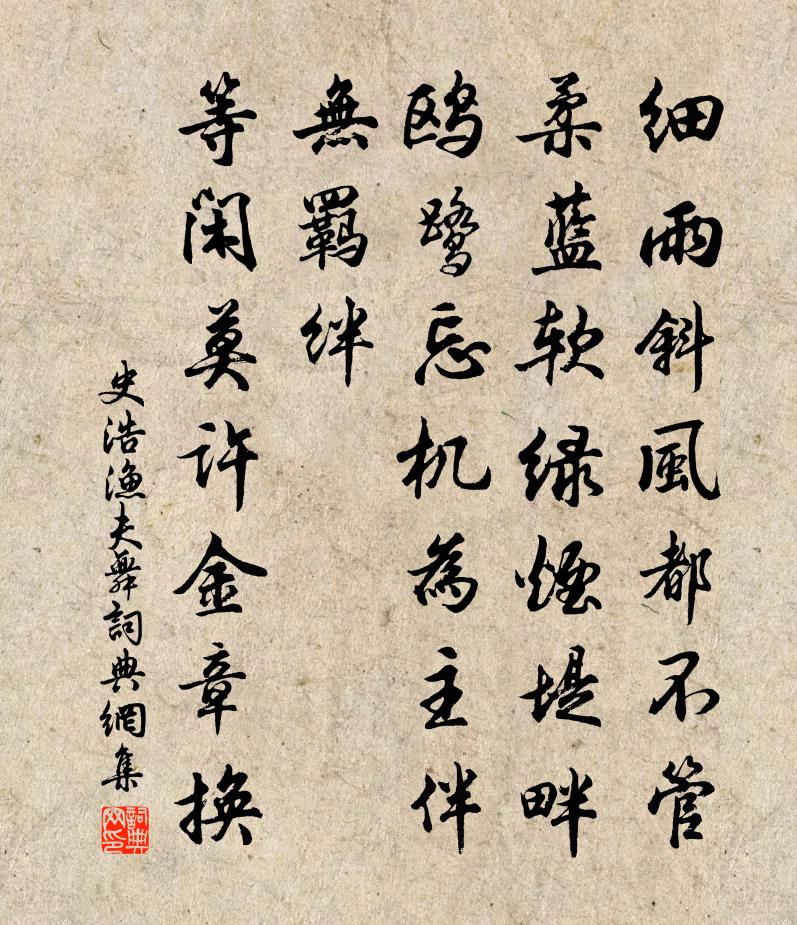 細雨斜風都不管
柔藍软緑煙堤畔
鸥鹭忘机為主伴
無羈絆
等闲莫许金章换
史浩渔夫舞詞典網集
詞典网印